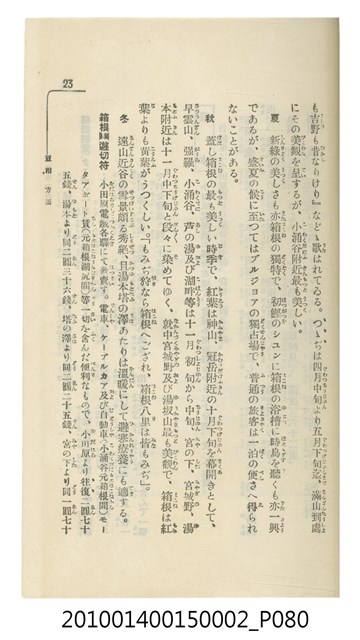 も吉野も昔なりけり』などゝ歌はれてゐる。つゝじは四月中旬より五月下旬迄、滿山到處
にその美觀を呈するが、小涌谷附近最も美しい。
夏　新綠の美しさも亦箱根の獨特で、初鰹のシユンに箱根の浴槽に時鳥を聽くも亦一興
であるが、盛夏の候に至つてはブルジョアの獨占場で、普通の旅客は一泊の便さへ得られ
ないことがある。
秋　蓋し箱根の最も美しい時季で、紅葉は神山、冠岳附近の十月下旬を幕開きとして、
早雲山、强羅、小涌谷、芦の湯及び湖畔等は十一月初旬から中旬、宮の下、宮城野、湯
本附近は十一月中下旬と段々に染めてゆく、就中宮城野及び湯坂山最も美觀で、箱根は紅
葉よりも黃葉がうつくしい。『もみぢ狩なら箱根へござれ、箱根八里は皆もみぢ』。
冬　遠山近谷の雪景頗る秀絕、且湯本塔の澤あたりは溫暖にして避寒療養にも適する。
箱根廻遊切符　小田原電鐵各驛にて發賣す。電車、ケーブルカア及び自動車(小涌谷元箱根間)モー
タアボート賃(元箱根湖尻間)等一切を含んだ便利なもので、小田原より往復三圓七十
五錢、湯本より同二圓三十六錢、塔の澤より同二圓二十五錢、宮の下より同一圓七十
23
201001400150002_P080